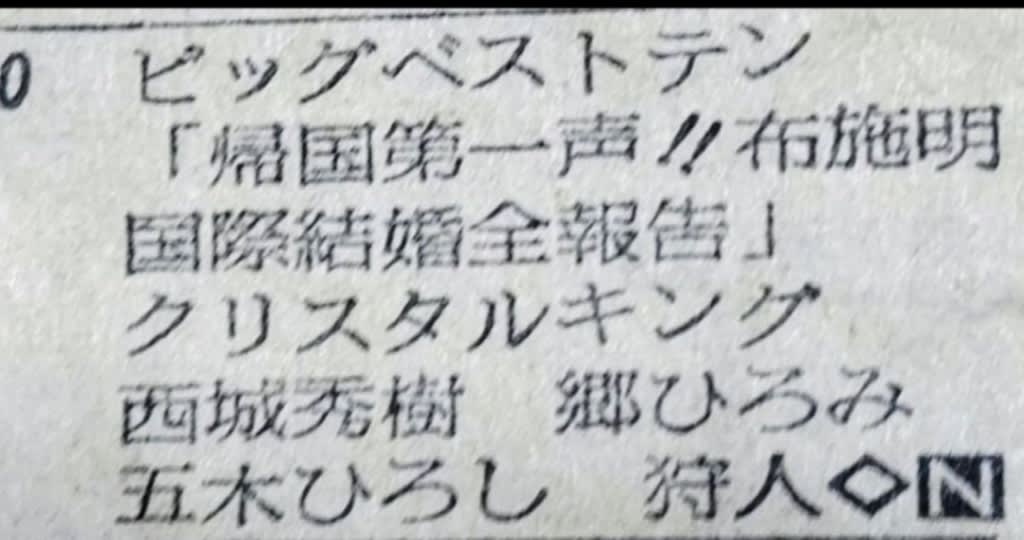 0 ビッグベストテン
「帰国第一声!!布施明
国際結婚全報告」
クリスタルキング
西城秀樹 郷ひろみ
五木ひろし 狩人◇N